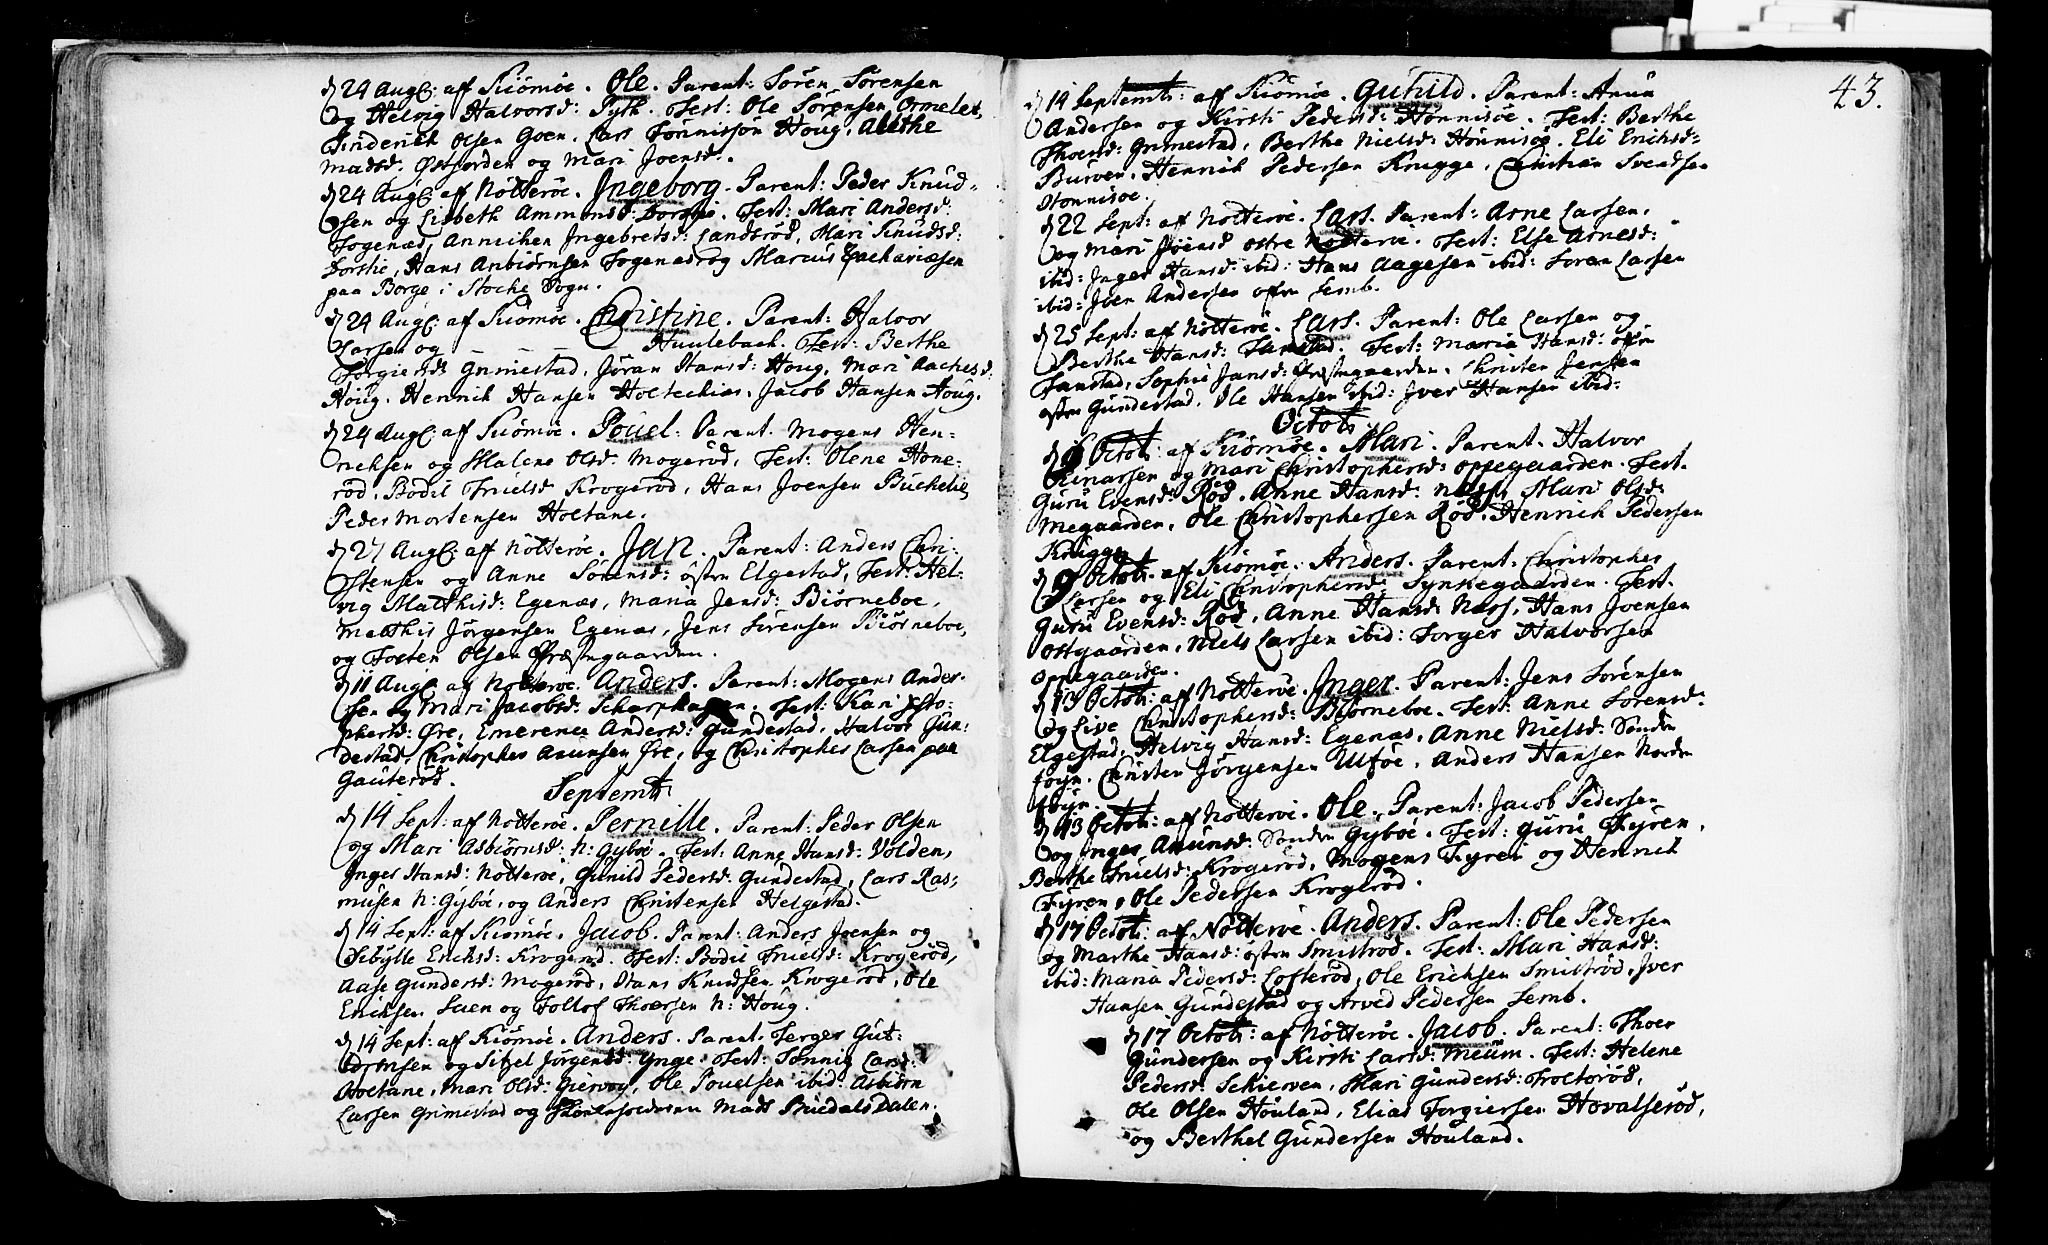 d 24 Aug: af Kiömöe. Ole. Parent: Sören Sörensen
og Helvig Halvorsd: Fyth. Test: Ole Sörensen Ormelet,
Olsen Goen, Lars Tönnissön Houg, Alethe
Madsd: Østjorden og Mari Joensd:.
d 24 Aug: af Nötteröe. Ingeborg. Parent: Peder Knud-
sen og Lisbeth Ammonsd: Torstie. Test: Mari Andersd:
Fogenæs, Annichen Ingebretsd: Landsröd, Mari Knudsd:
Torstie, Hans Anbiörnsen Fogenæs og Marius Zachariæsen
paa Borge i Stocke Sogn.
d 24 Aug: af Kiömöe. Christine. Parent: Halvor
Larsen og — — — Huulebach. Test: Berthe
Torgiersd: Grimestad, Jöran Hansd: Houg, Mari Aachesd:
Houg. Henrich Hansen Holtechias. Jacob Hansen Houg.
d 24 Aug: af Kiömöe. Pouel. Parent. Mogens Hen-
richsen og Malene Olsd: Mogeröd, Test: Olene Hone-
röd, Bodil Truelsd Krogeröd, Hans Joensen Buchelie
Peder Mortensen Holtane.
d 27 Aug: af Nötteröe. Jan. Parent: Anders Chri-
stensen og Anne Sörensd: östre Elgestad, Test: Hel-
vig Matthisd: Egenæs, Maria Jensd: Biörneboe,
Matthis Jörgensen Egenæs, Jens Sörensen Biörneboe,
og Torten Olsen Præstegaarden.
d 11 Aug: af Nötteröe. Anders. Parent: Mogens Ander-
sen og Mari Jacobsd: Scharphagen. Test: Kari Xsto-
phersd: Øre, Emerence Andersd: Gundestad, Halvor Gun-
destad, Christopher Amunsen Øre, og Christopher Larsen paa
Gauteröd.
Septemb:
d 14 Sept: af Nötteröe. Pernille. Parent: Peder Olsen
og Mari Asbiörnsd: N: Gyböe. Test: Anne Hansd: Volden,
Inger Hansd: Nötteröe, Gunild Pedersd: Gundestad, Lars Ras-
musen N: Gyböe, og Anders Christensen Helgestad.
d 14 Sept: af Kiömöe. Jacob. Parent: Anders Joensen og
Sebylle Erichsd: Krogeröd. Test: Bodil Truelsd: Krogeröd,
Aase Gundersd: Mogeröd, Hans Knudsen Krogeröd, Ole
Erichsen Luen og Tollof Thoersen N: Houg.
d 14 Sept: af Kiömöe. Anders. Parent. Torger Gut-
ormsen og Sitzel Jörgensd: Ynge. Test: Tönnie Larsd:
Holtane, Mari Olsd: Giervog, Ole Pouelsen ibid: Asbiörn
Larsen Grimestad og Mads Buedalsdalen.
43.
d 14 Septemb: af Kiömöe. Guhild. Parent: Amun
Andersen og Kirsti Pedersd: Hönnisöe. Test: Berthe
Thoersd: Grimestad, Berthe Nielsd: Hönnisöe. Eli Erichsd:
Burven. Henrich Pedersen Krugge, Christian Svendsen
Stonnisöe.
d 22 Sept: af Nötteröe. Lars. Parent: Arne Larsen,
og Mari Joensd östre Nötteröe. Test: Else Arnesd:
ibid: Inger Hansd: ibid: Hans Aagesen ibid: Sören Larsen
ibid: Joen Andersen östre Semb.
d 25 Sept: af Nötteröe. Lars. Parent: Ole Larsen og
Berthe Hansd: Tanstad. Test: Maria Hansd: östre
Tanstad, Sophie Jansd: Præstegaarden. Christen Jensen
östre Gundestad, Ole Hansen ibid: Iver Hansen ibid:
Octob:
d 9 Octob: af Kiömöe. Mari. Parent. Halvor
Einarsen og Mari Christophersd: Oppegaarden. Test.
Guru Evensd: Röd. Anne Hansd: Næss, Mari Olsd:
Megaarden, Ole Christophersen Röd, Henrich Pedersen
Krugge
d 9 Octob: af Kiömöe. Anders. Parent. Christopher
Larsen og Eli Christophersd: Synstegaarden. Test.
Guru Evensd: Röd, Anne Hansd: Næss, Hans Joensen
Østgaarden, Niels Larsen ibid: Torger Halvorsen
Oppegaarden.
d 13 Octob: af Nötteröe. Inger. Parent: Jens Sörensen
og Live Christophersd: Biörneboe. Test: Anne Sörensd:
Elgestad, Helvig Hansd: Egenæs, Anne Nielsd: Sönden
föyn. Christen Jörgensen Ulföe, Anders Hansen Norden
föyn.
d 13 Octob: af Nötteröe. Ole. Parent: Jacob Pedersen
og Inger Amunsd: Sönden Gyboe. Test: Guru Fyren,
Berthe Truelsd: Krogeröd, Mogens Fyren og Henrich
Fyren, Ole Pedersen Krogeröd.
d 17 Octob: af Nötteröe. Anders. Parent: Ole Pedersen
og Marthe Hansd: östre Smiströd. Test: Mari Hansd:
ibid: Maria Pedersd: Lofteröd, Ole Erichsen Smiströd, Iver
Hansen Gundestad og Arved Pedersen Semb.
d 17 Octob: af Nötteröe. Jacob. Parent: Thoer
Gundersen og Kirsti Larsd: Meum. Test: Helene
Pedersd: Schierven, Mari Gundersd: Troltoröd,
Ole Olsen Houland, Elias Torgiersen Hovalseröd,
og Berthel Gundersen Houland.